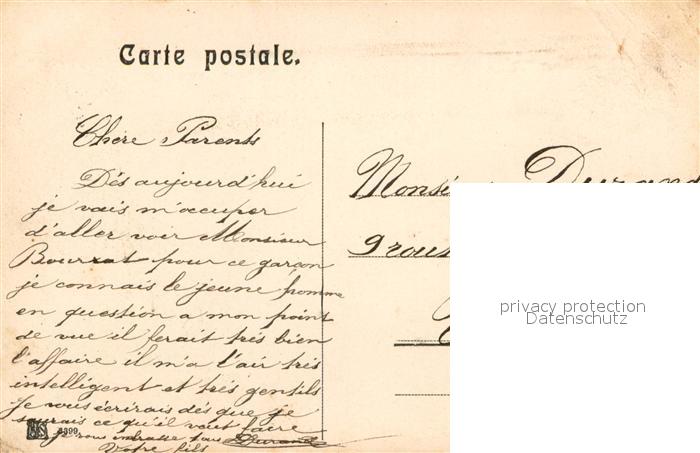 Carte postale.
Chère Parents
Dés aujourd'hui
je vais m'occuper
d'aller voir Monsieur
Bourrat pour ce garçon
je connais le jeune homme
en question a mon point
de vue il ferait très bien
l'affaire il m'a l'air très
intelligent et très gentils
Je vous écrirais dés que je
saurais ce qu'il veut faire
je vous embrasse tous Durand
Votre fils
4399
Monsieur Durand
privacy protection
Datenschutz